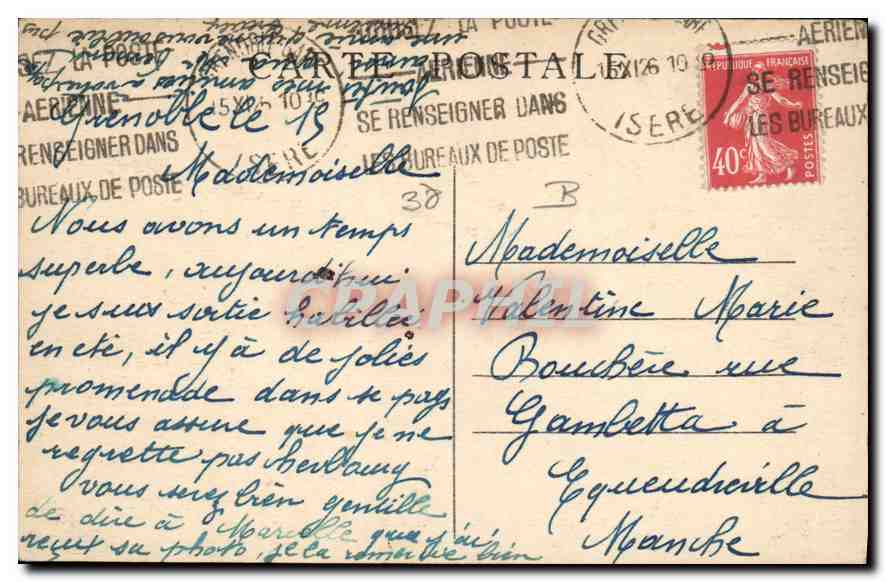 CARTE POSTALE
Grenoble le 15
Mademoiselle
Nous avons un temps
superbe, aujourd'hui
je suis sortie habillée
en été, il y a de jolies
promenade dans se pays
je vous assure que je ne
regrette pas
vous serez bien gentille
de dire à Marcelle que j'ai
reçux sa photo, je la remercie bien
Mademoiselle
Valentine Marie
Bouchère rue
Gambetta à
Equeudreville
Manche
38
B
LA POSTE
AERIENNE
RENSEIGNER DANS
BUREAUX DE POSTE
15 XI 26 10
ISERE
LA POSTE
AERIENNE
SE RENSEIGNER DANS
LES BUREAUX DE POSTE
15 XI 26 10
ISERE
AERIENNE
SE RENSEIG
LES BUREAUX
REPUBLIQUE FRANÇAISE
40c
POSTES
CPAPHIL